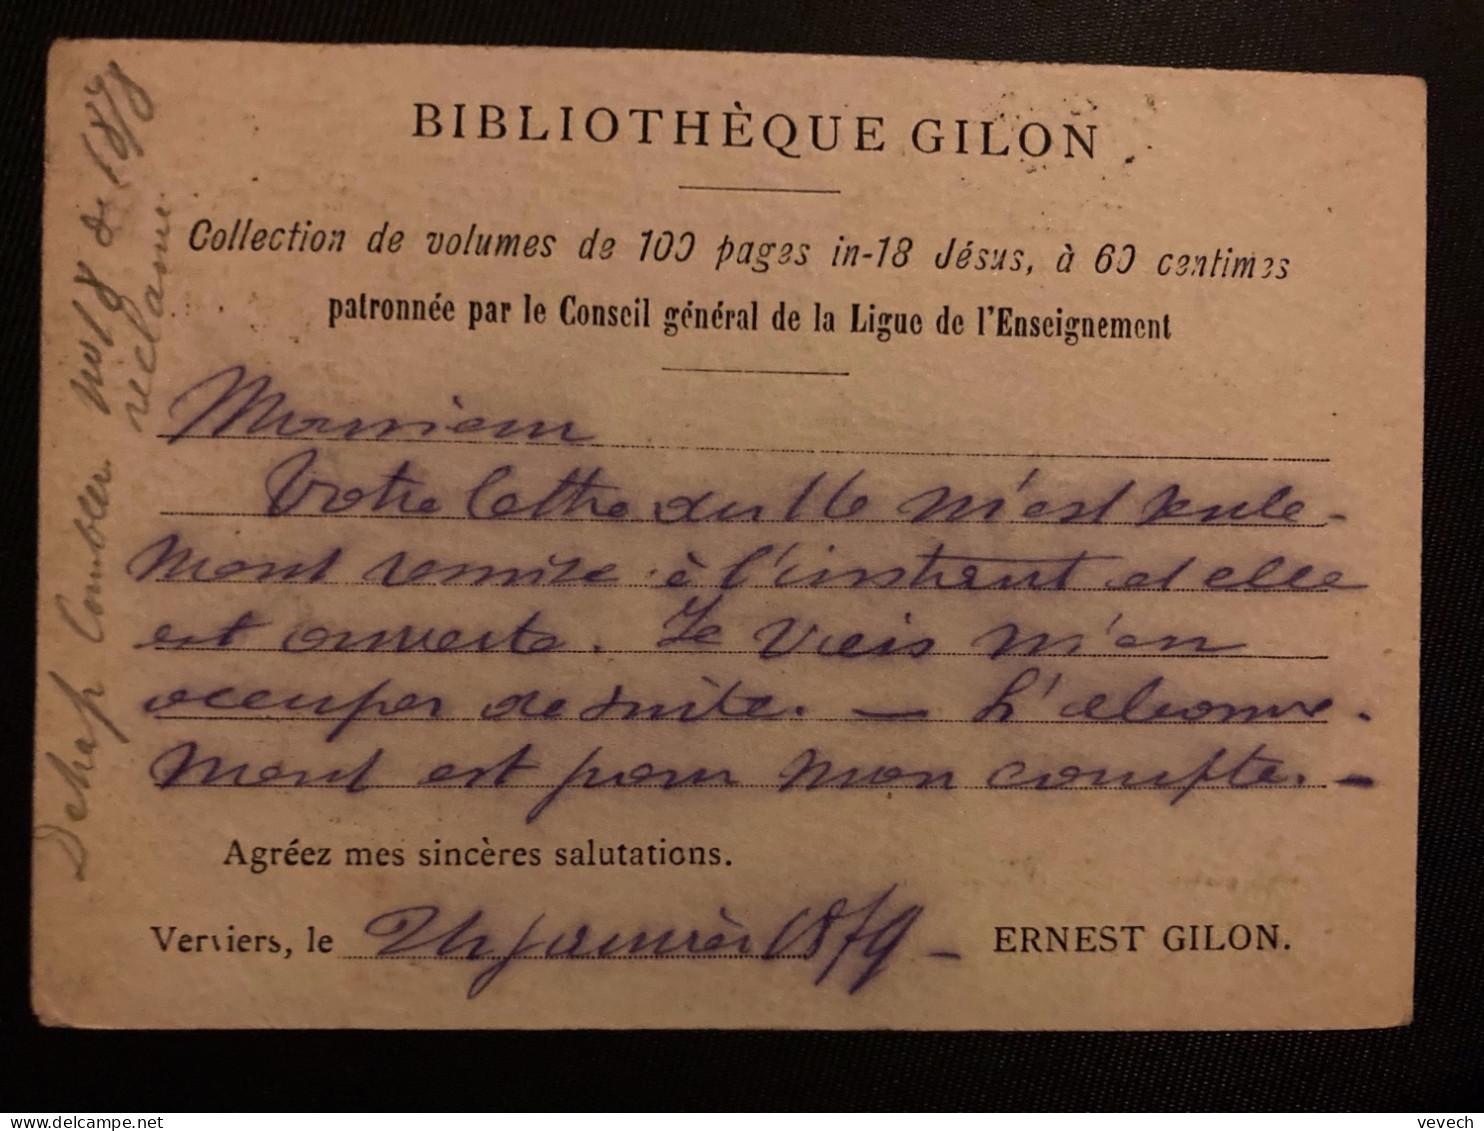 BIBLIOTHÈQUE GILON
Collection de volumes de 100 pages in-18 Jésus, à 60 centimes
patronnée par le Conseil général de la Ligue de l'Enseignement
Monsieur
Votre lettre du 16 m'est seule-
ment remise à l'instant et elle
est ouverte. Je vais m'en
occuper de suite. — L'abonne-
ment est pour mon compte. —
Agréez mes sincères salutations.
Verviers, le 24 janvier 1879 — ERNEST GILON.
no 18 de 1878
réclame
vevech